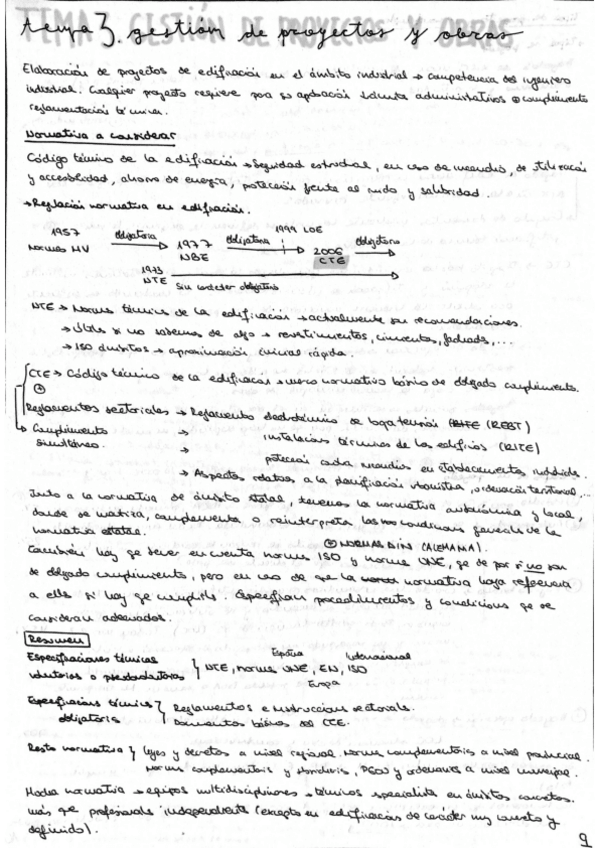 TEMA 3. GESTIÓN DE PROYECTOS Y OBRAS
Elaboración de proyectos de edificación en el ámbito industrial → competencia del ingeniero
industrial. Cualquier proyecto requiere para su aprobación trámites administrativos ⊕ cumplimiento
reglamentación técnica.
Normativa a considerar
Código técnico de la edificación → seguridad estructural, en caso de incendio, de utilización
y accesibilidad, ahorro de energía, protección frente al ruido y salubridad.
→ Regulación normativa en edificación.
1957 obligatoria 1977 obligatoria 1999 LOE 2006 obligatorio
Normas MV NBE CTE
1973
NTE Sin carácter obligatorio
NTE → Normas técnicas de la edificación → actualmente son recomendaciones.
→ Útiles si no sabemos de algo → revestimientos, cimientos, fachadas,...
→ 150 ámbitos → aproximación inicial rápida.
CTE → Código técnico de la edificación → marco normativo básico de obligado cumplimiento.
⊕
Reglamentos sectoriales → Reglamento electrotécnico de baja tensión (REBT)
Cumplimiento → instalaciones térmicas de los edificios (RITE)
simultáneo. → protección contra incendios en establecimientos industriales.
→ Aspectos relativos a la planificación urbanística, ordenación territorial,...
Junto a la normativa de ámbito estatal, tenemos la normativa autonómica y local,
donde se matiza, complementa o reinterpreta las condiciones generales de la
normativa estatal.
⊕ NORMAS DIN (ALEMANIA).
También hay que tener en cuenta normas ISO y normas UNE, que de por sí no son
de obligado cumplimiento, pero en caso de que la normativa haga referencia
a ellas sí hay que cumplirlas. Especifican procedimientos y condiciones que se
consideran adecuados.
Resumen
Especificaciones técnicas España Internacional
voluntarias o NTE, normas UNE, EN, ISO
Europa
Especificaciones técnicas Reglamentos e instrucciones sectoriales.
obligatorias Documentos básicos del CTE.
Resto normativa } leyes y decretos a nivel regional. Normas complementarias a nivel provincial.
normas complementarias y PGOU y ordenanzas a nivel municipal.
Mucha normativa → equipos multidisciplinares → técnicos especialistas en ámbitos concretos.
más que profesionales independientes (excepto en edificación de carácter muy concreto y
definido).
9